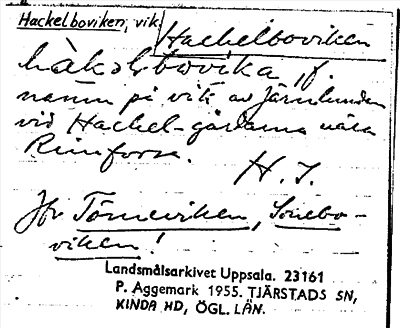 Hackelboviken, vik
Hackelboviken
hàkəlbωvika, f.
namn på vik av Järnlunden
vid Hackel-gårdarna nära
Rimforsa.
H. J.
Jfr Törneviken, Sonebo-
viken!
Landsmålsarkivet Uppsala. 23161
P. Aggemark 1955. TJÄRSTADS SN,
KINDA HD, ÖGL. LÄN.